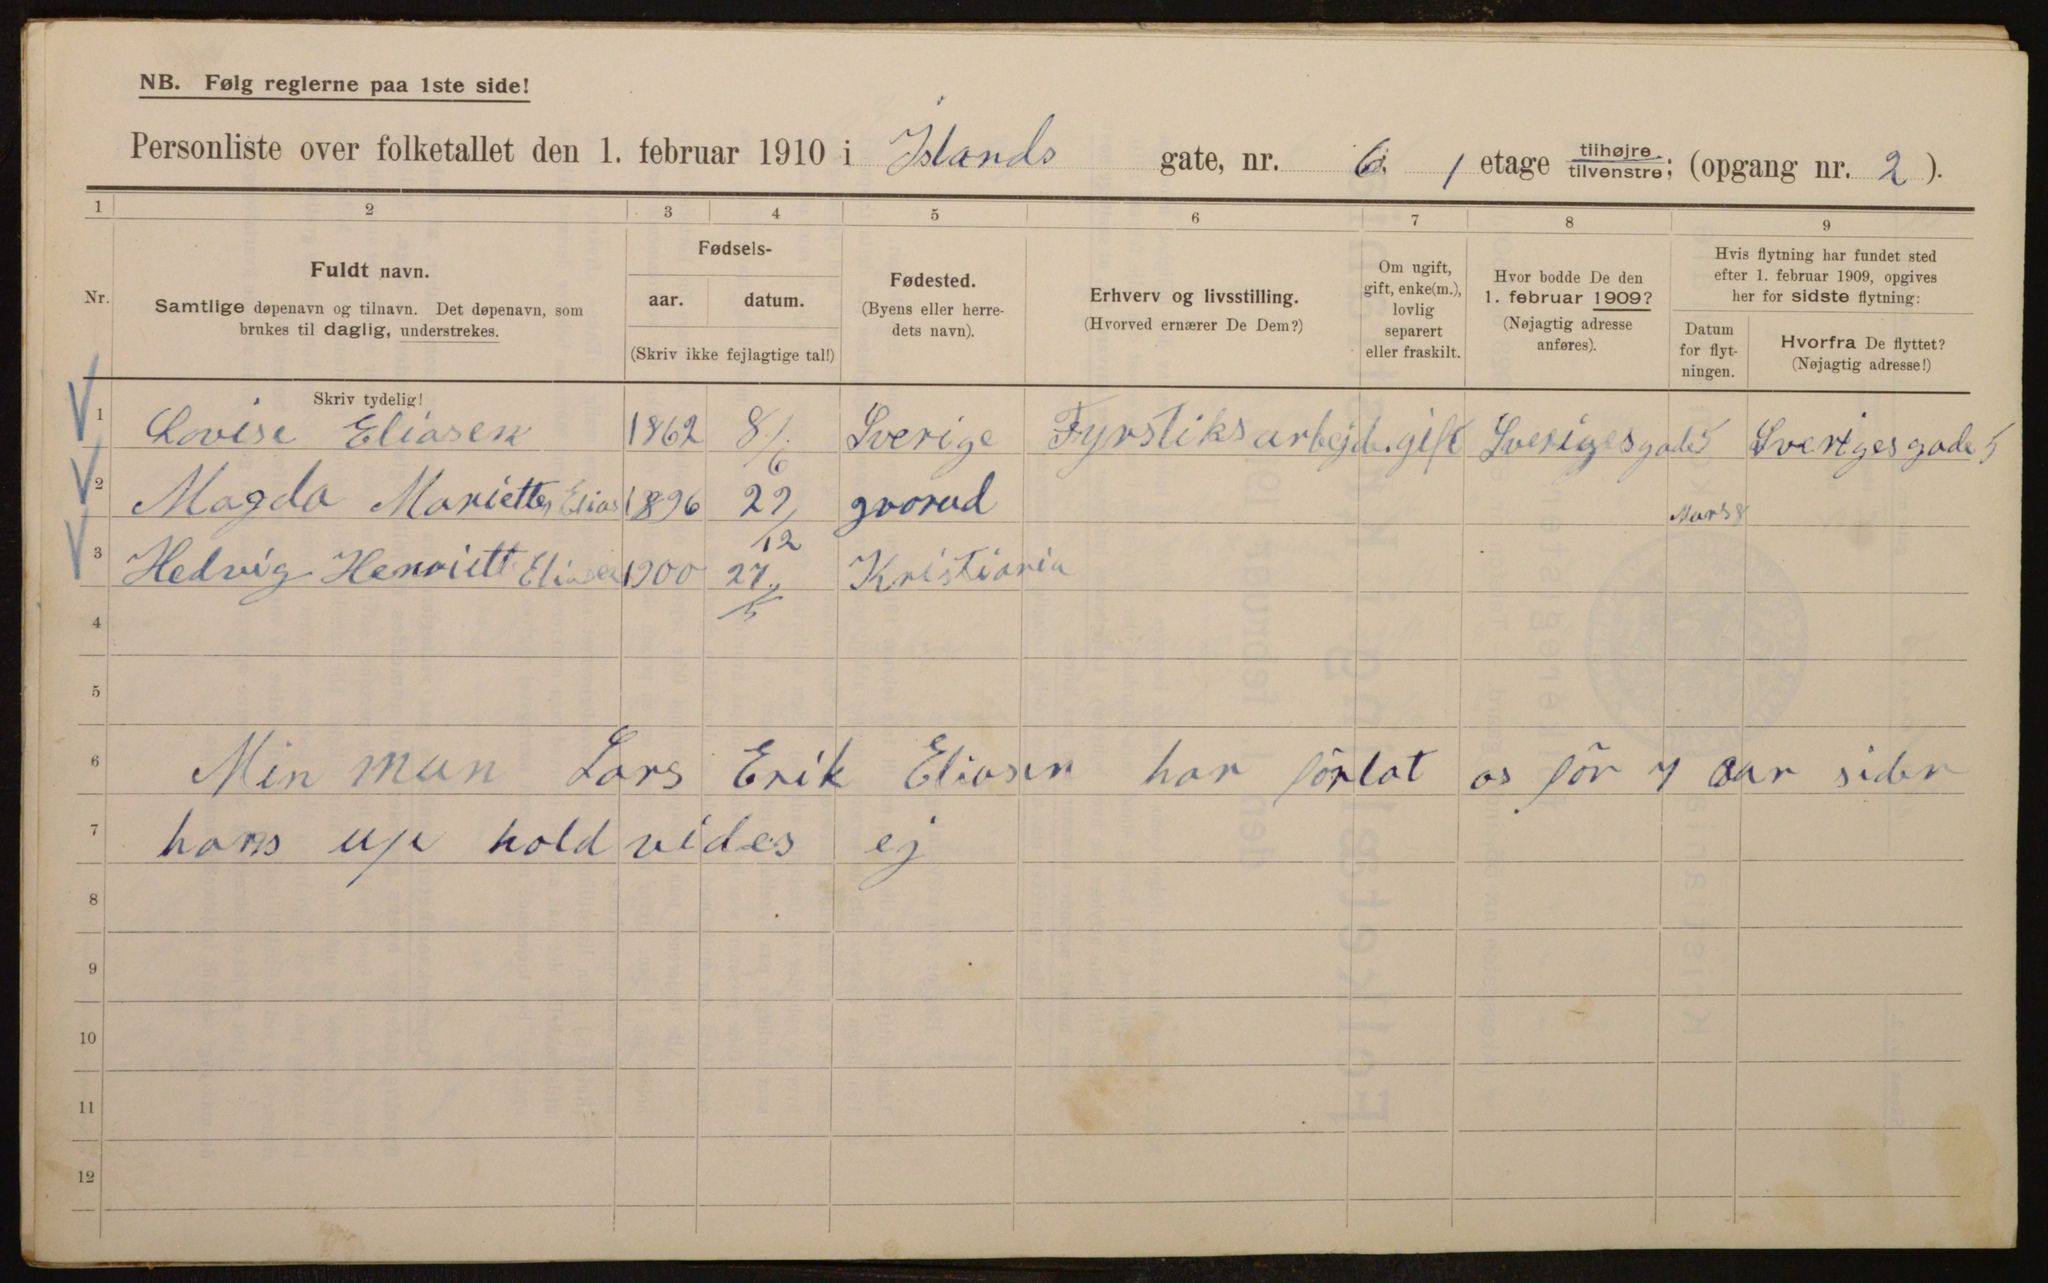 NB. Følg reglerne paa 1ste side!
Personliste over folketallet den 1. februar 1910 i Islands gate, nr. 6. 1 etage tilhøjre/tilvenstre; (opgang nr. 2 ).
1 2 3 4 5 6 7 8 9
Nr.
Fuldt navn.
Samtlige døpenavn og tilnavn. Det døpenavn, som
brukes til daglig, understrekes.
Fødsels-
aar. datum.
(Skriv ikke fejlagtige tal!)
Fødested.
(Byens eller herre-
dets navn).
Erhverv og livsstilling.
(Hvorved ernærer De Dem?)
Om ugift,
gift, enke(m.),
lovlig
separert
eller fraskilt.
Hvor bodde De den
1. februar 1909?
(Nøjagtig adresse
anføres).
Hvis flytning har fundet sted
efter 1. februar 1909, opgives
her for sidste flytning:
Datum
for flyt-
ningen.
Hvorfra De flyttet?
(Nøjagtig adresse!)
Skriv tydelig!
1 Lovise Eliasen 1862 8/6 Sverige Fyrstiksarbejd. gift Sverigesgade 5 Sverigesgade 5
2 Magda Mariette Elias 1896 22/12 gvorud Mars 8
3 Hedvig Henriett Eliasen 1900 27/5 Kristiania
4
5
6 Min man Lars Erik Eliasen har førlat os før 7 aar siden
7 hans up hold vides ej
8
9
10
11
12